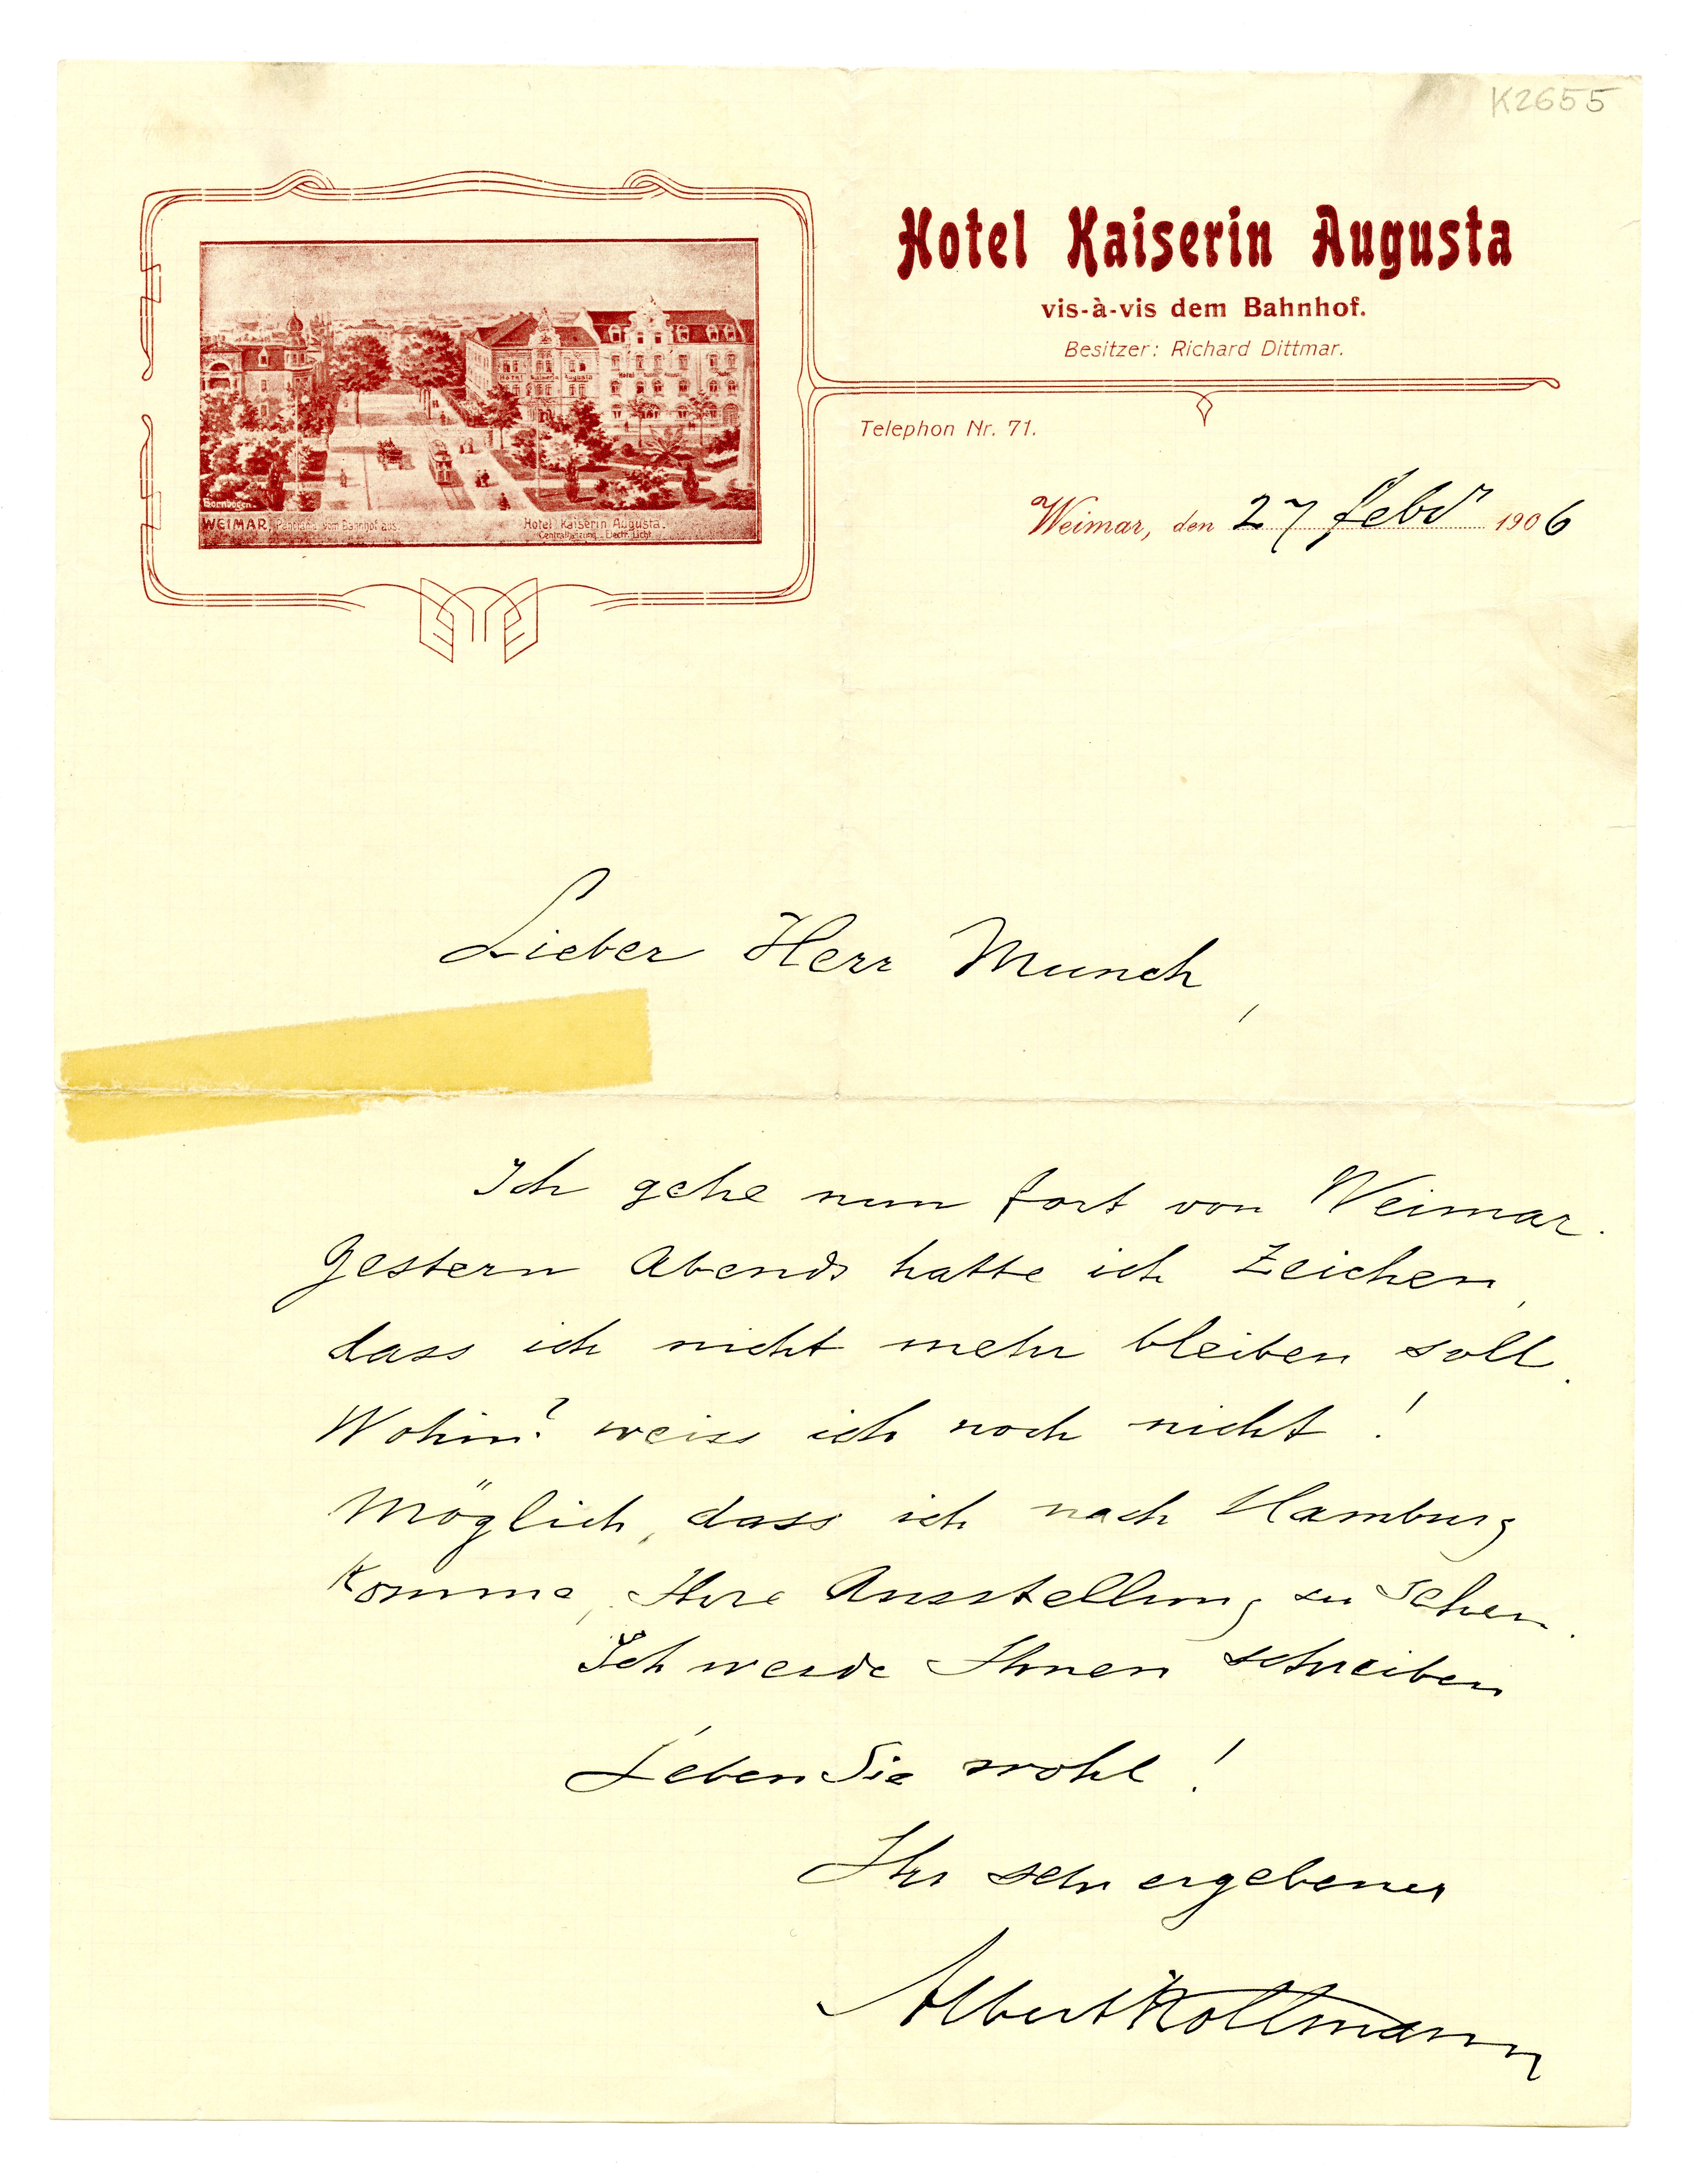 K2655
Hotel Kaiserin Augusta
vis-à-vis dem Bahnhof.
Besitzer: Richard Dittmar.
Telephon Nr. 71.
Bornbogen.
WEIMAR, Panorama vom Bahnhof aus.
Hotel Kaiserin Augusta.
Centralheizung. Electr. Licht.
Weimar, den 27 Febr 1906
Lieber Herr Munch,
Ich gehe nun fort von Weimar.
Gestern Abends hatte ich Zeichen,
dass ich nicht mehr bleiben soll.
Wohin? weiss ich noch nicht!
Möglich, dass ich nach Hamburg
komme, Ihre Ausstellung zu sehen.
Ich werde Ihnen schreiben
Leben Sie wohl!
Ihr sehr ergebener
Albert Kollmann